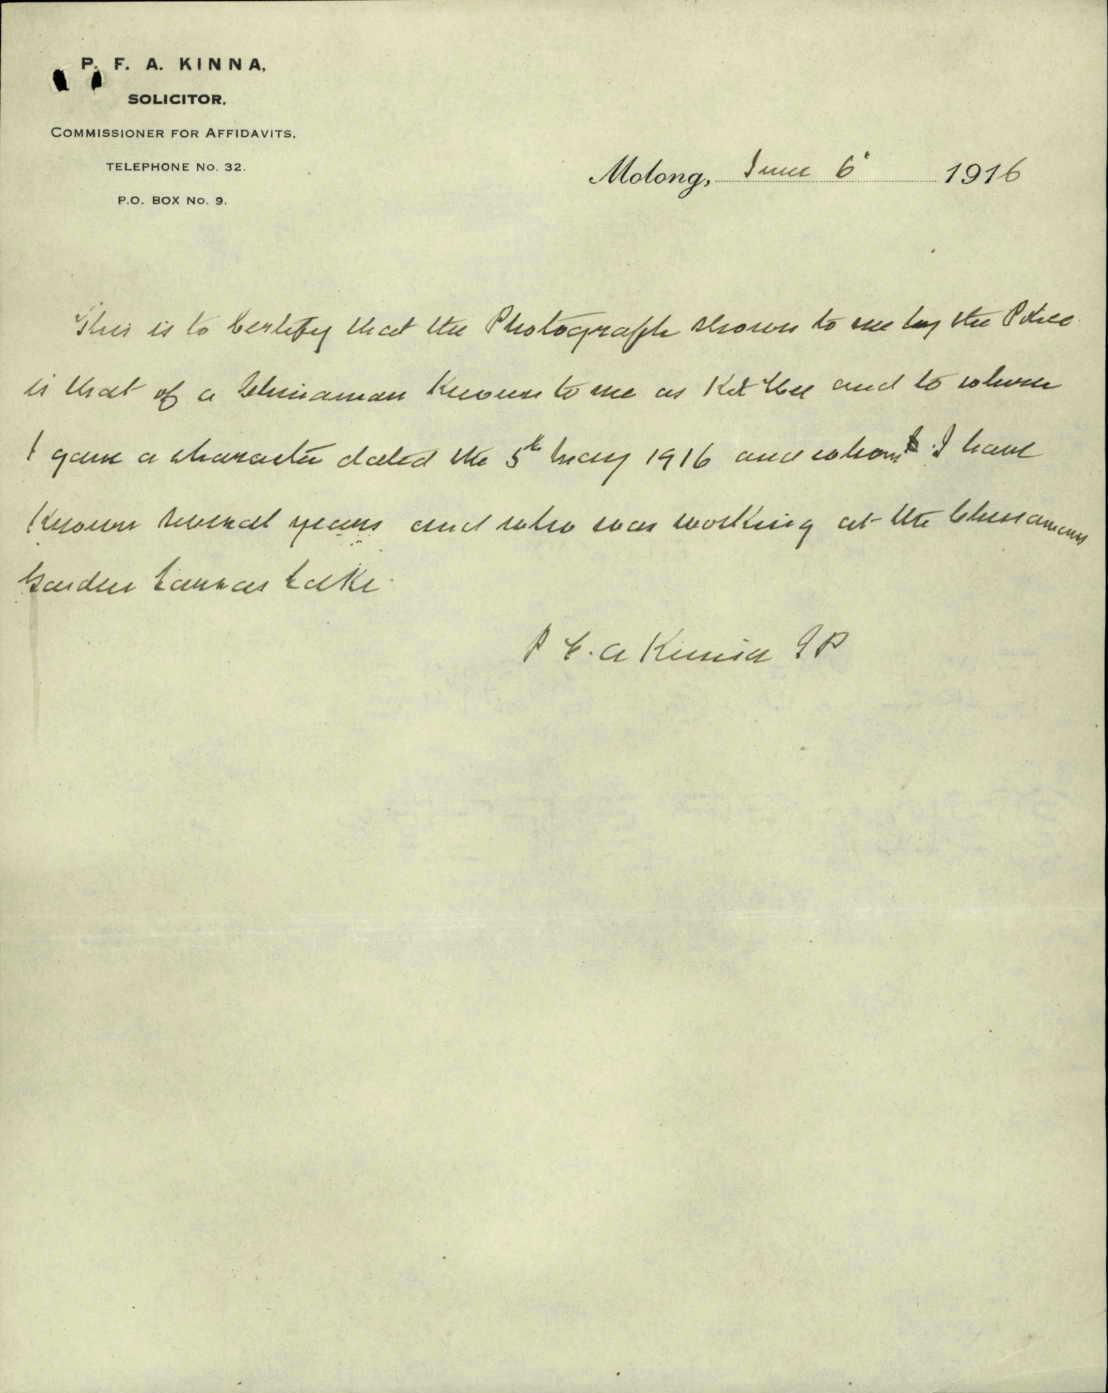 P. F. A. KINNA,
SOLICITOR.
COMMISSIONER FOR AFFIDAVITS.
TELEPHONE No. 32.
P.O. BOX No. 9.
Molong, June 6 1916
This is to Certify that the Photograph shown to me by the Police
is that of a Chinaman Known to me as Kit and to whom
I gave a character dated the 5th May 1916 and whom I have
Known several years and who was working at the Chinamans
Garden Larras Lake.
P F. A Kinna JP